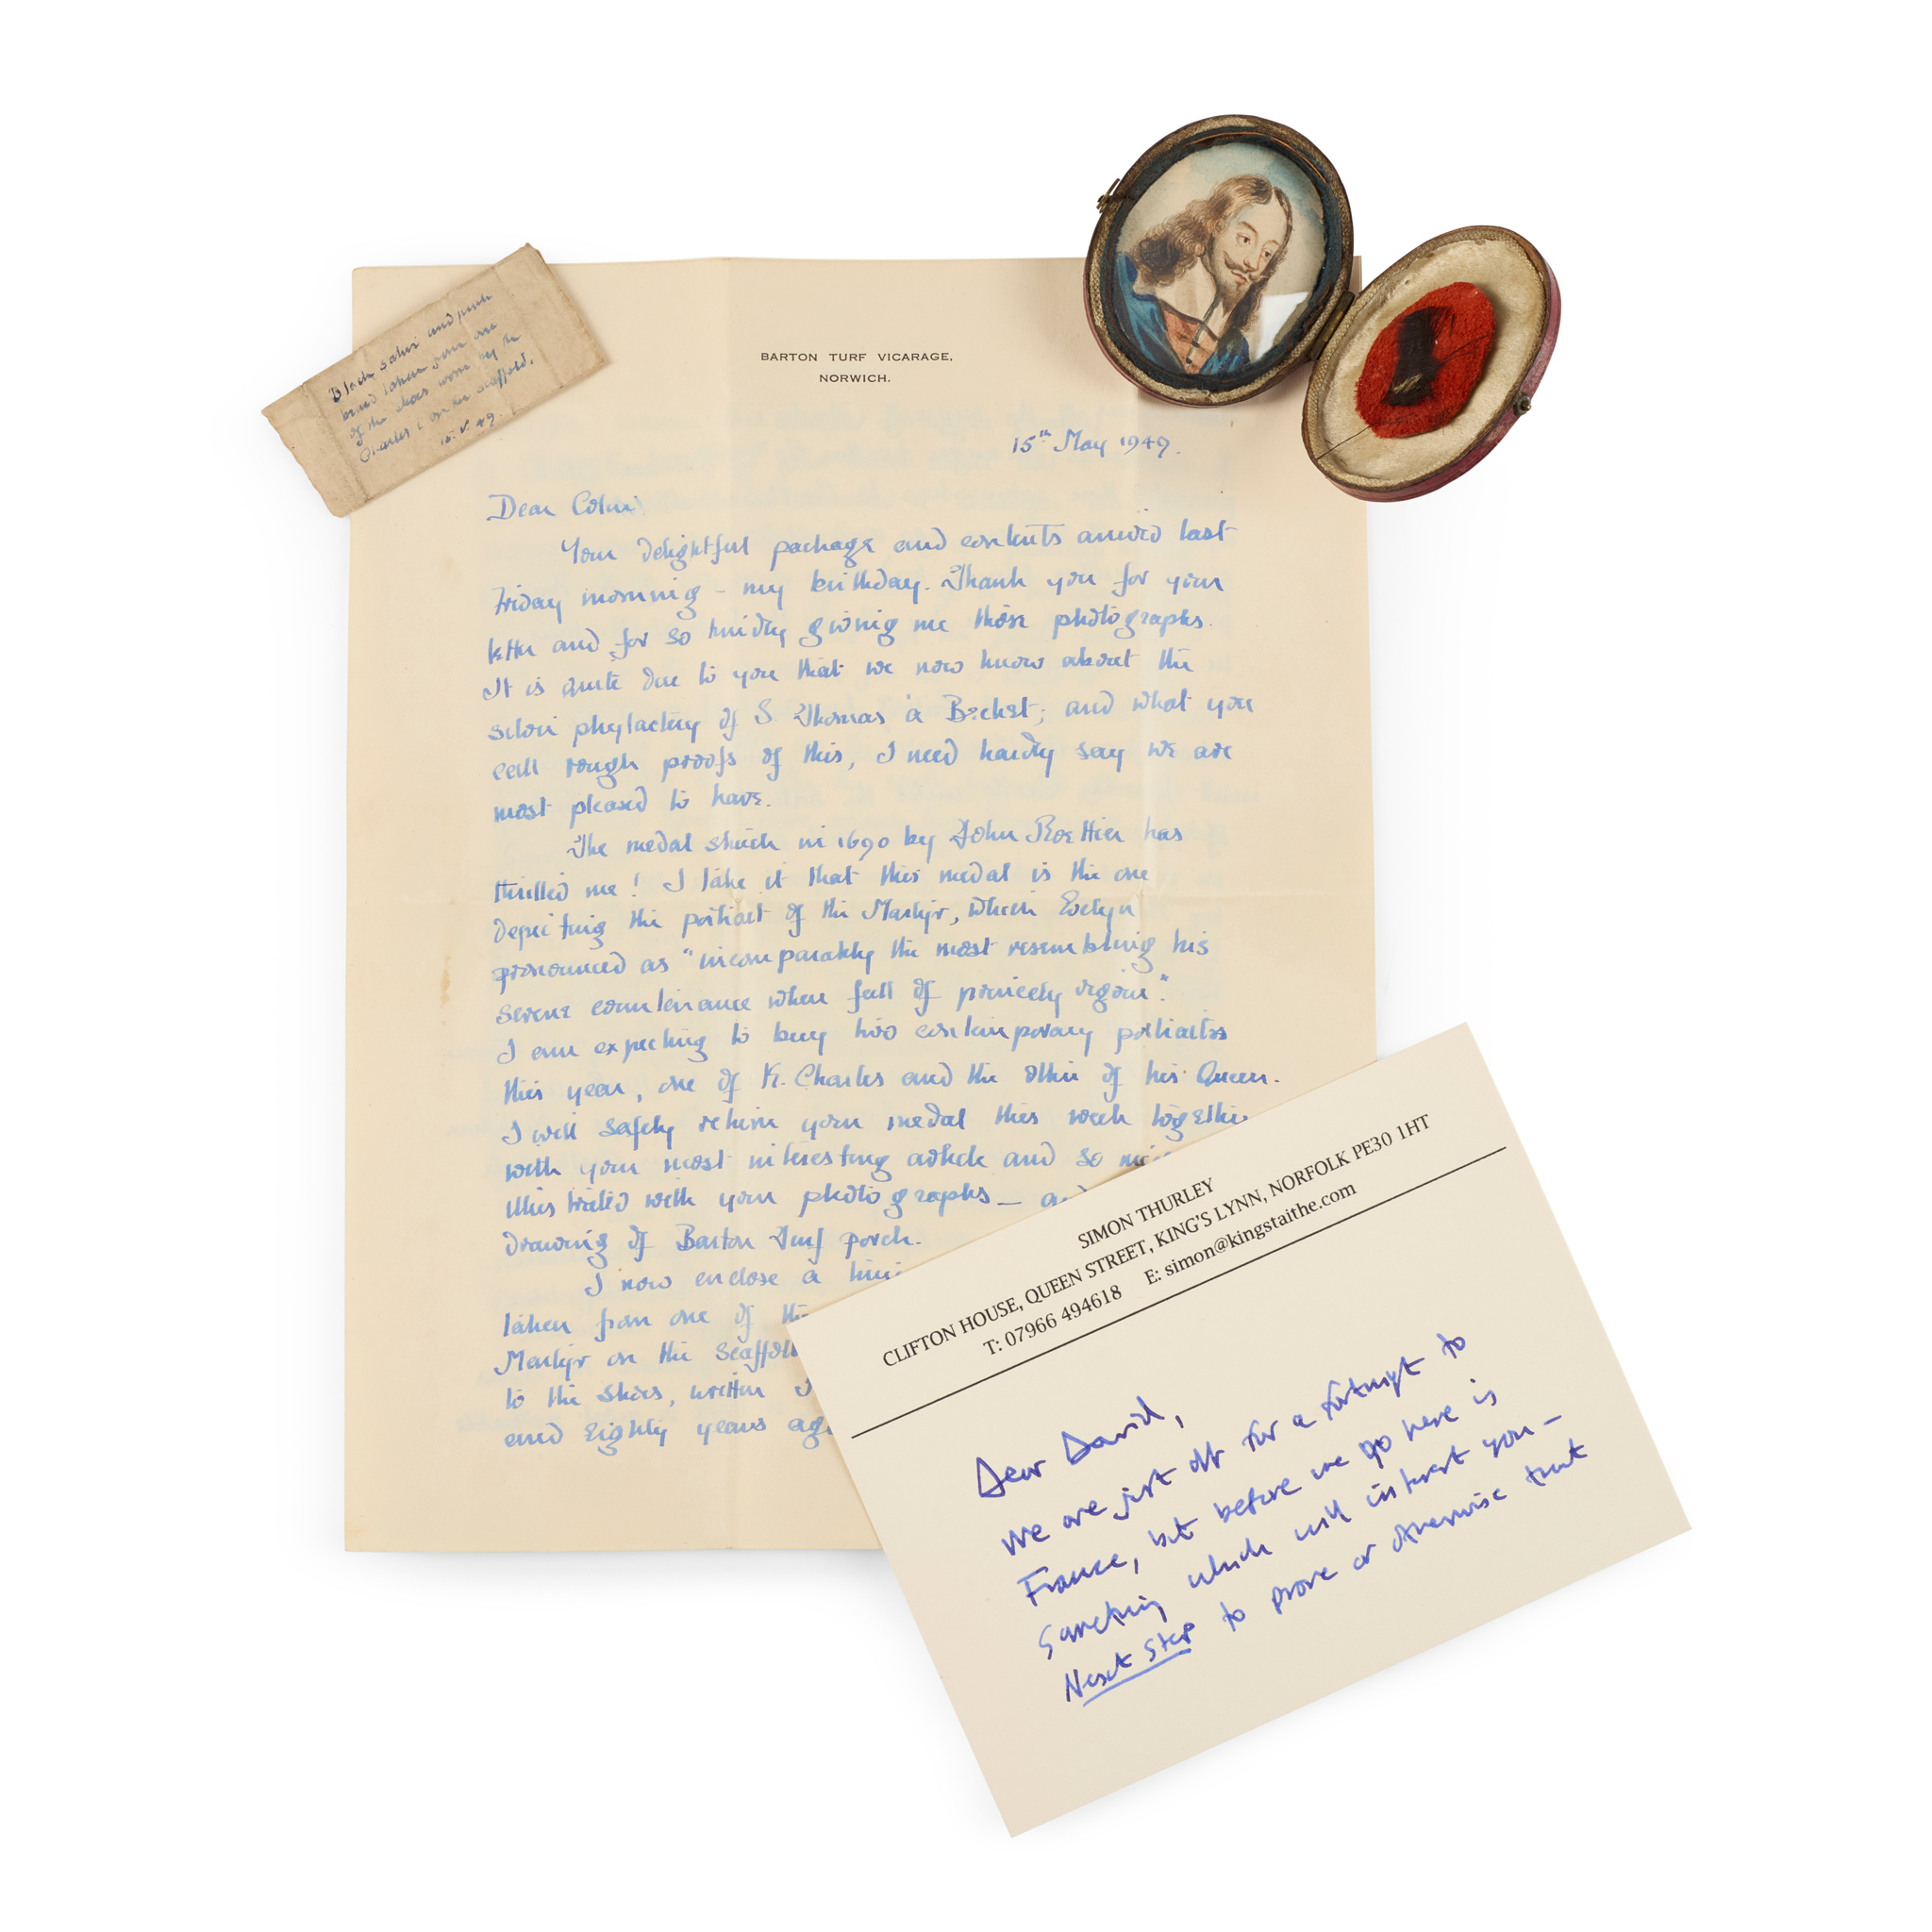 Black satin and
braid taken from one
of the shoes worn by the
Charles I on the scaffold.
15.V.49.
BARTON TURF VICARAGE,
NORWICH.
15th May 1949.
Dear Colin
Your delightful package and contents arrived last
Friday morning - my birthday. Thank you for your
letter and for so kindly giving me those photographs.
It is quite due to you that we now know about the
silver phylactery of S. Thomas à Becket; and what you
call rough proofs of this, I need hardly say we are
most pleased to have.
The medal struck in 1690 by John Roettier has
thrilled me! I take it that this medal is the one
depicting the portrait of the Martyr, which Evelyn
pronounced as "incomparably the most resembling his
serene countenance when full of princely vigour".
I am expecting to buy two contemporary portraits
this year, one of K. Charles and the other of his Queen.
I will safely return your medal this week together
with your most interesting article and so
illustrated with your photographs —
drawing of Barton Turf porch.
I now enclose a
taken from one of the
Martyr on the scaffold
to the shoes, written
and eighty years ago
SIMON THURLEY
CLIFTON HOUSE, QUEEN STREET, KING'S LYNN, NORFOLK PE30 1HT
T: 07966 494618 E: simon@kingstaithe.com
Dear David,
We are just off for a fortnight to
France, but before we go here is
something which will interest you –
Next step to prove or otherwise that